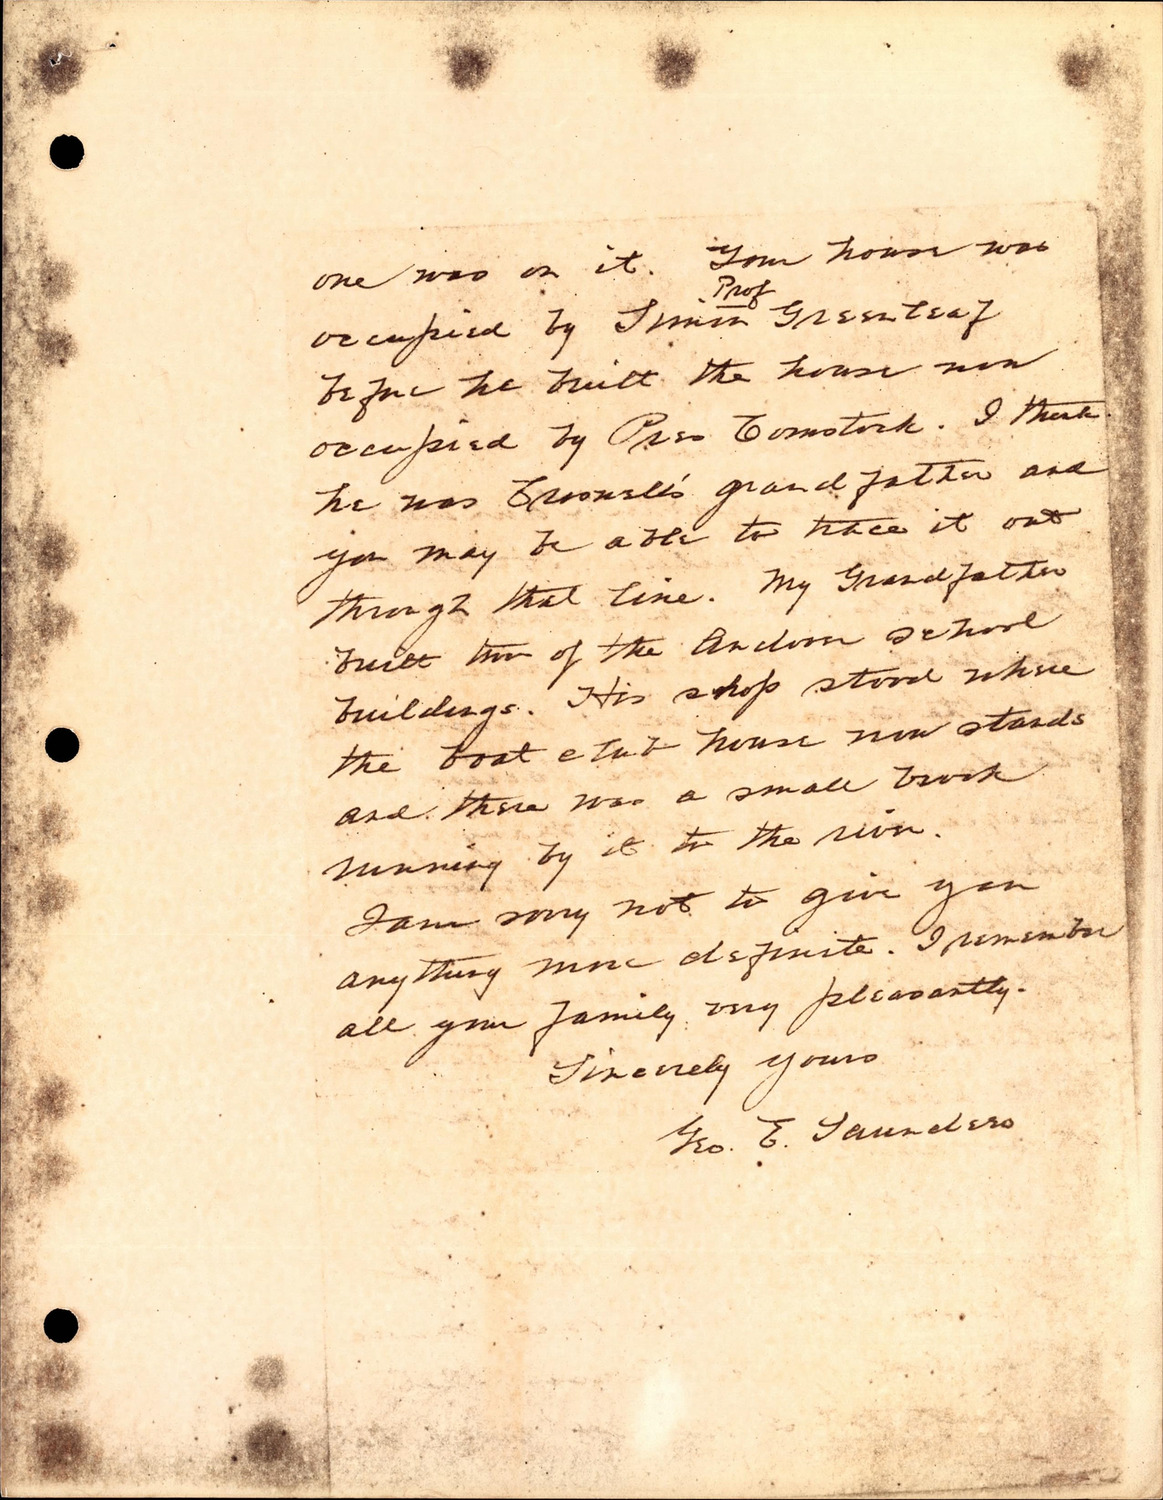 one was on it. Your house was
Prof
occupied by Simon Greenleaf
before he built the house now
occupied by Pres Comstock. I think
he was Croswell's grandfather and
you may be able to trace it out
through that line. My Grandfather
built two of the Andover school
buildings. His shop stood where
the boat club house now stands
and there was a small brook
running by it to the river.
I am sorry not to give you
anything more definite. I remember
all your family very pleasantly.
Sincerely yours
Geo. E. Saunders